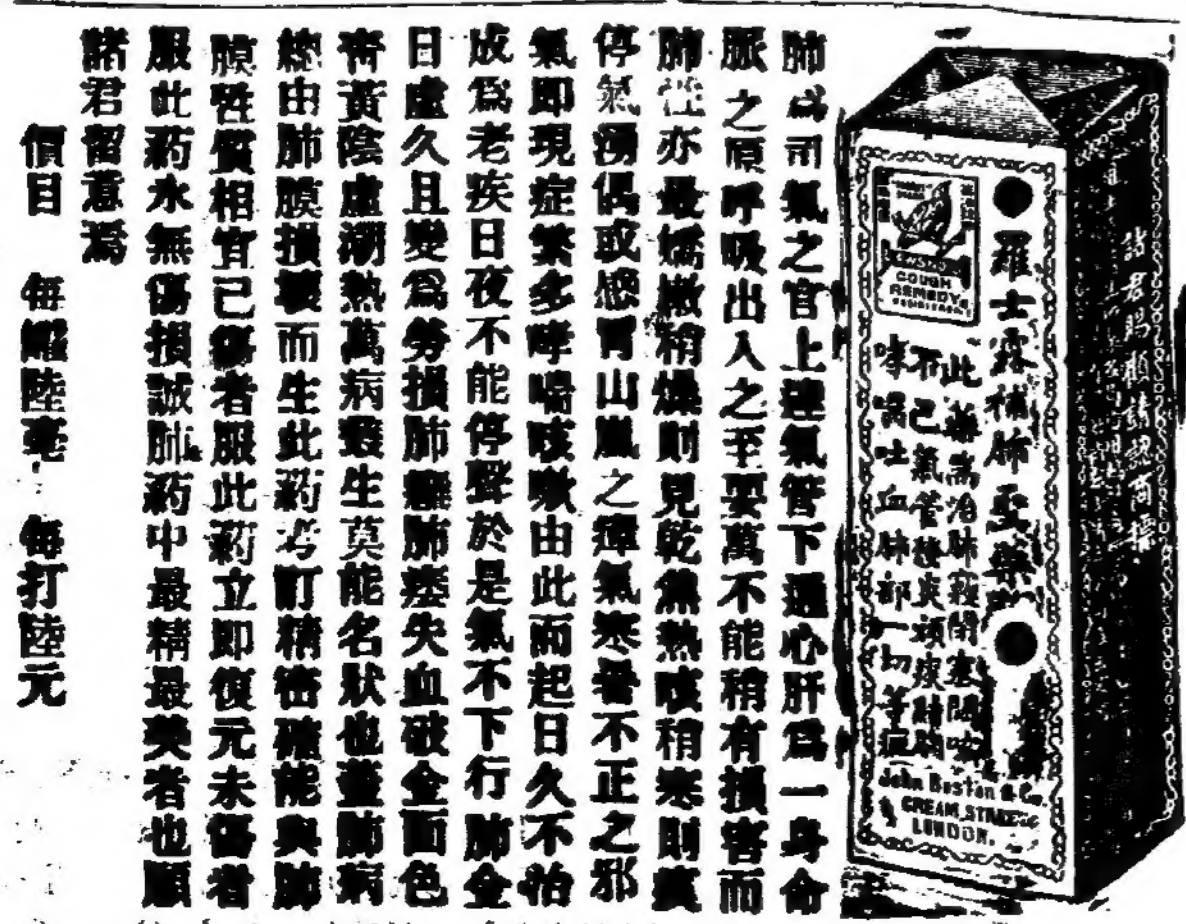 諸君賜顧請認商標
羅士霖補肺聖藥
此藥耑治肺竅閉塞隔
不已氣管發炎頑痰
咯吐血肺部一切等症
COUGH
REMEDY
John Boston & Co.
CREAM STREET
LONDON.
肺為司氣之官上連氣管下通心肝爲一身命
脈之原呼吸出入之至要萬不能稍有損害而
肺性亦最嬌嫩稍燥則見乾焦熱咳稍寒則痰
停氣湧偶或感冒山嵐之瘴氣寒暑不正之邪
氣即現症繁多哮喘咳嗽由此而起日久不治
成爲老疾日夜不能停聲於是氣不下行肺金
日虛久且變爲勞損肺癰肺痿失血破金面色
青黃陰虛潮熱萬病叢生莫能名狀也蓋肺病
總由肺膜損壞而生此葯考訂精密確能與肺
膜性質相宜已傷者服此葯立即復元未傷者
服此葯水無傷損誠肺葯中最精最美者也願
諸君留意焉
價目 每罇陸毫 每打陸元